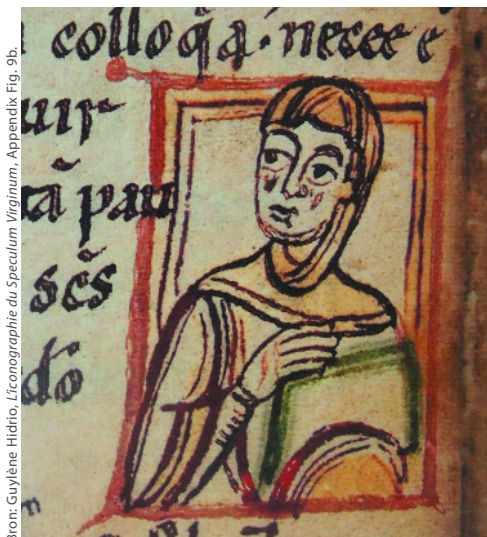 Bron: Guylène Hidrio, L'iconographie du Speculum Virginum, Appendix Fig. 9b.
colloq̃a · necee e
uir
tā pau
sc̄s